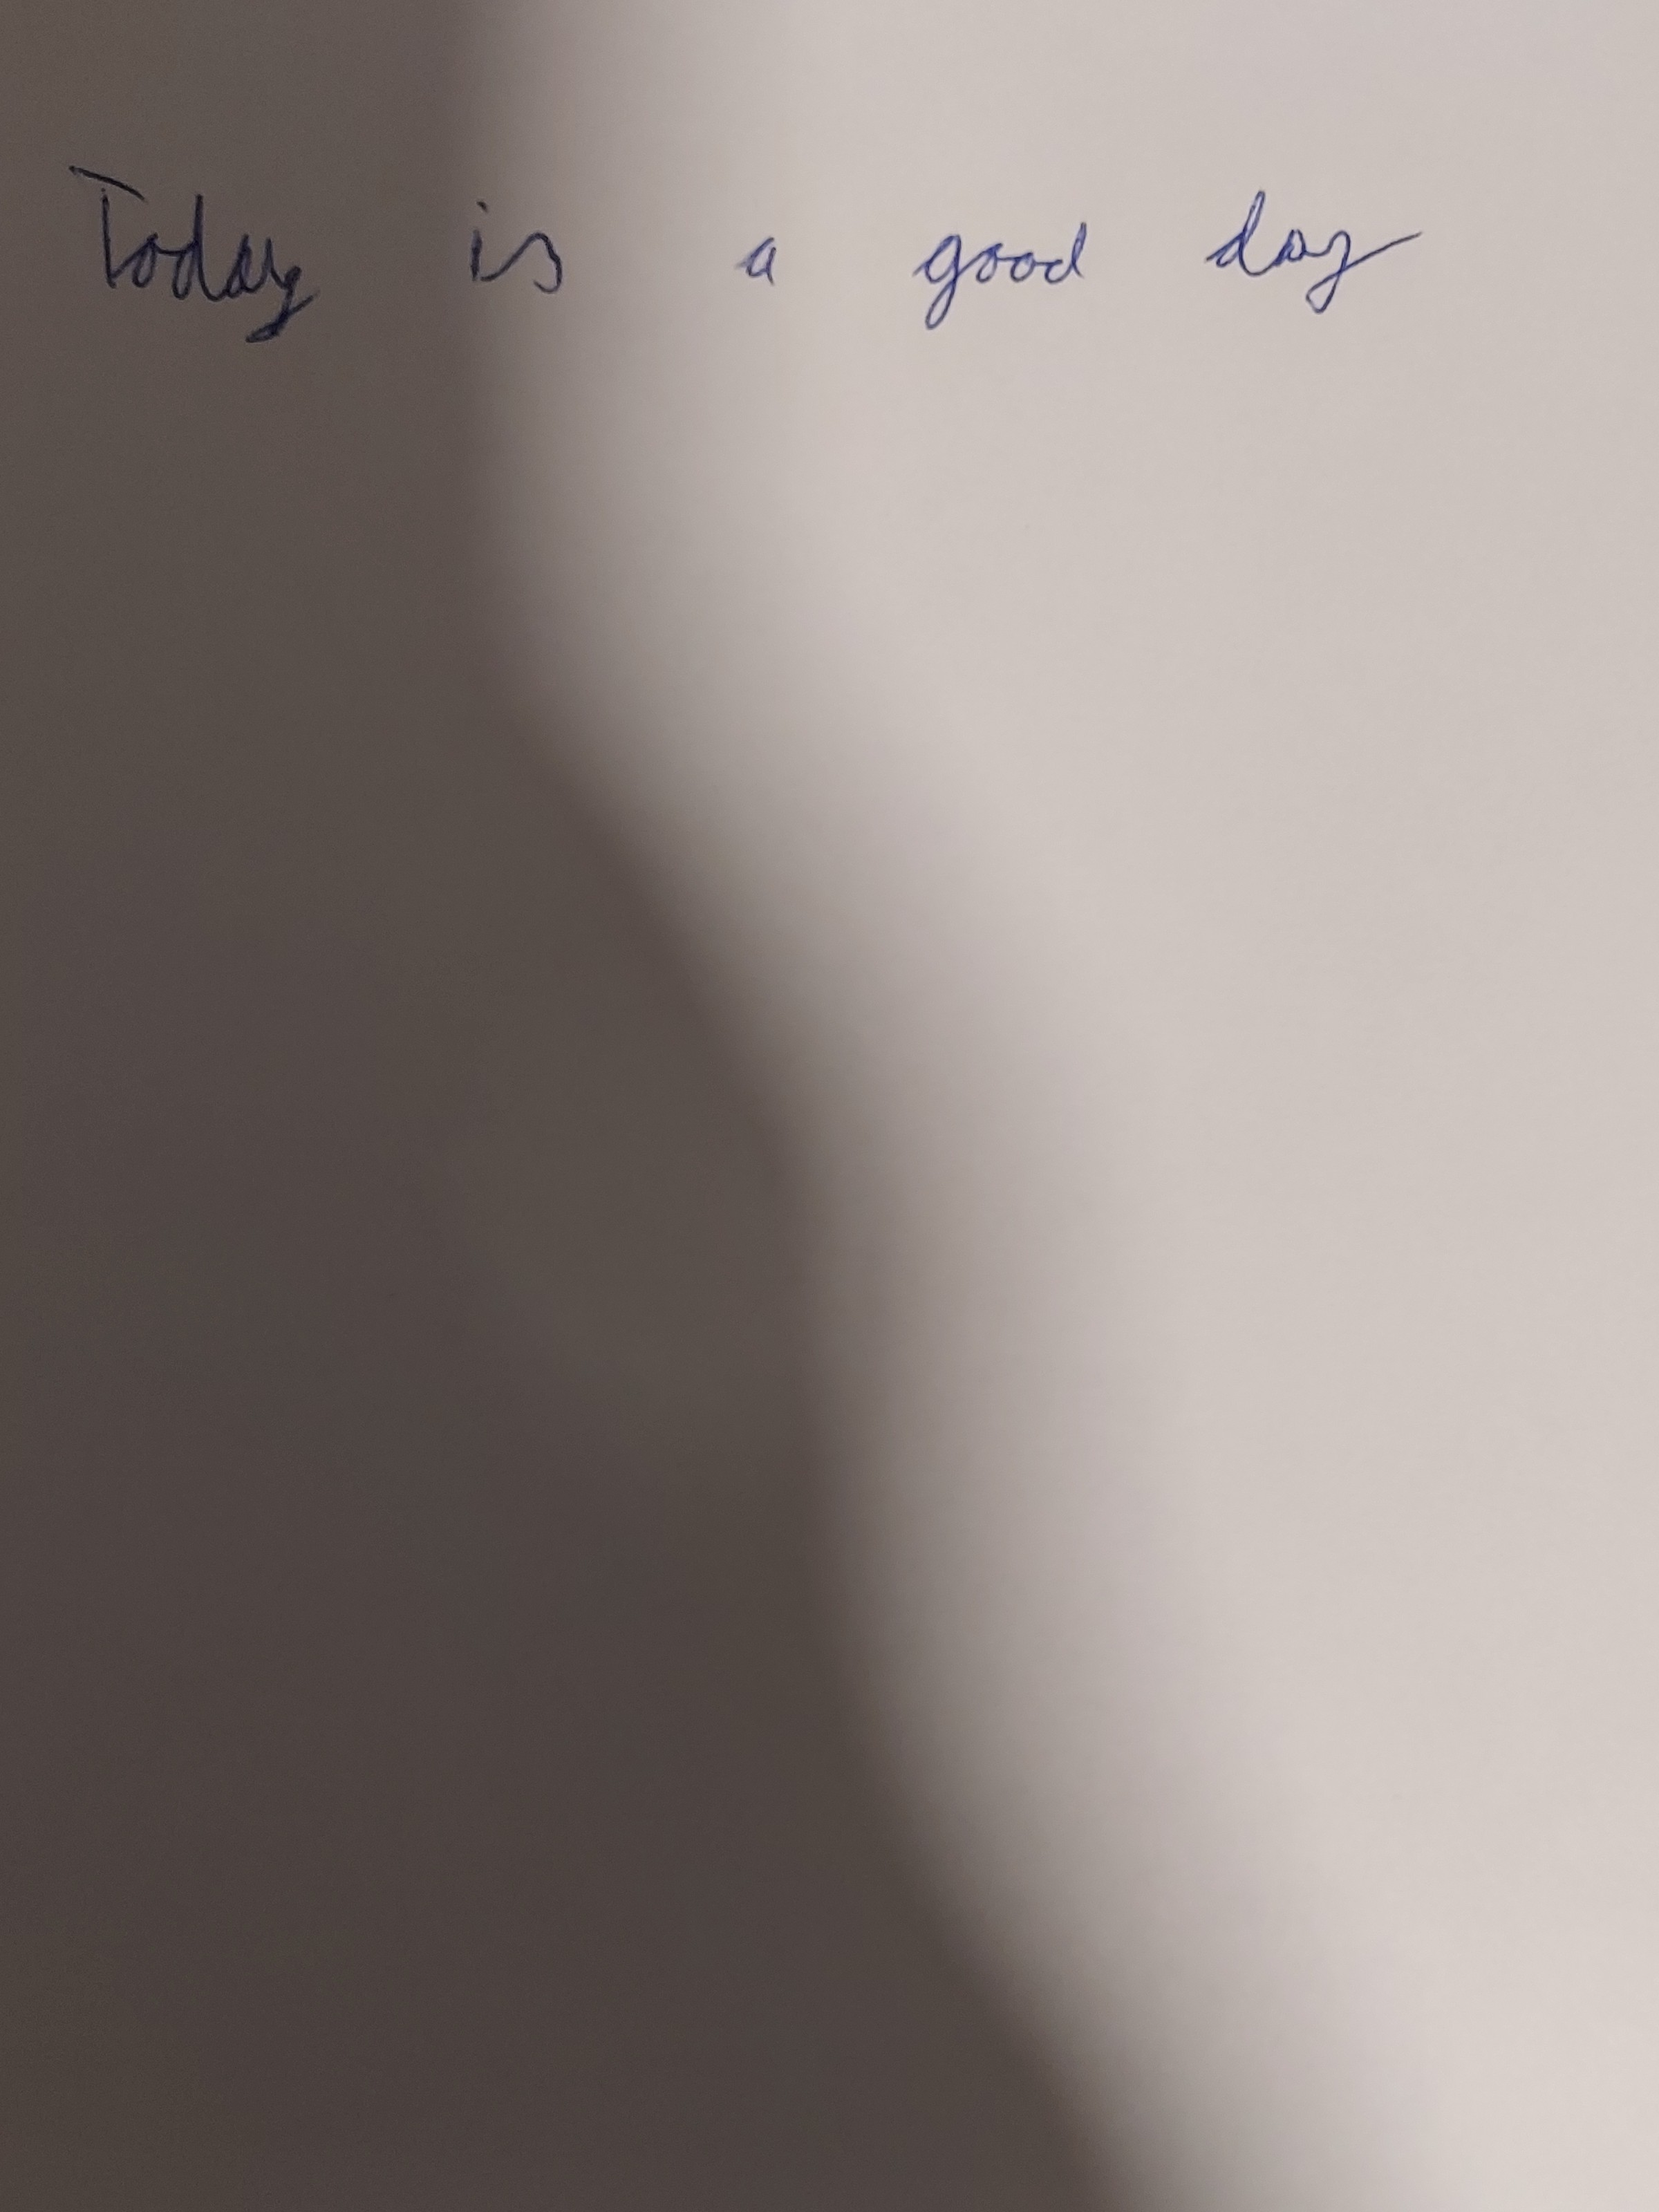 Today is a good day